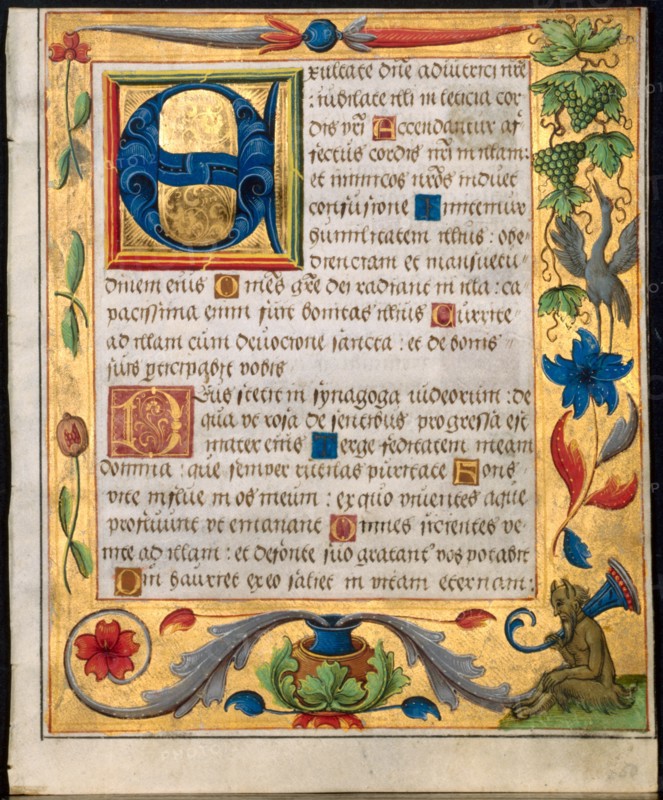 Exultate dn̄e adiutrici nr̄e
: iubilate illi in leticia cor
dis vr̄i Accendantur af
fectus cordis nr̄i in illam:
et inimicos nr̄os induet
confusione Imitemur
humilitatem illius : obe"
dienciam et mansuetu"
dinem eius Omēs gr̄e dei radiant in illa : ca"
pacissima enim fuit bonitas illius Currite"
ad illam cum deuocione sancta : et de bonis"
suis pticipabit vobis
Deus stetit in synagoga iudeorum : de
qua vt rosa de sentibus progressa est
mater eius Terge feditatem meam
domina : que semper rutilas puritate Fons"
vite influe in os meum : ex quo viuentes aque
profluunt vt emanant Omnes sicientes ve"
nite ad illam : et de fonte suo gratant vos potabit
Qui hauriet ex eo saliet in vitam eternam: